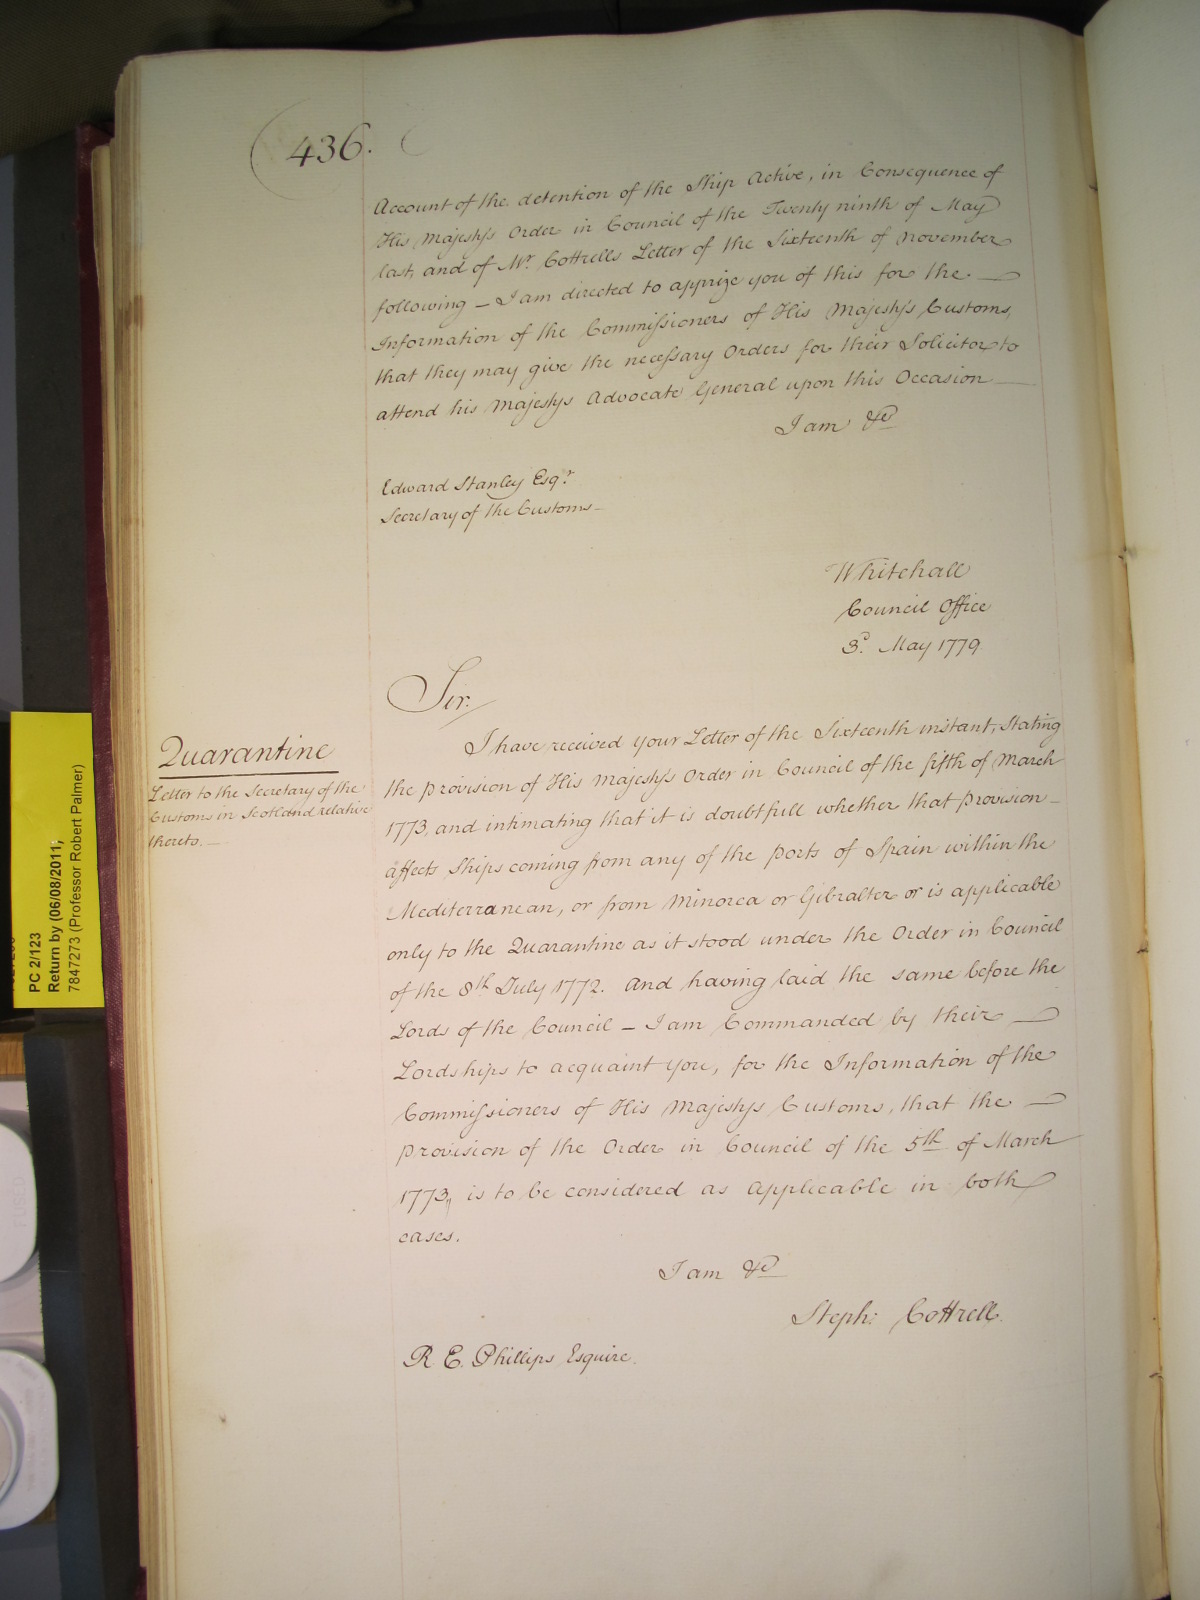 436.
Account of the detention of the Ship Active, in Consequence of
His Majesty's Order in Council of the Twenty ninth of May
last, and of Mr. Cottrells Letter of the Sixteenth of November
following — I am directed to apprize you of this for the —
Information of the Commissioners of His Majesty's Customs,
that they may give the necessary Orders for their Solicitor to
attend his Majestys Advocate General upon this Occasion —
I am &c
Edward Stanley Esqr.
Secretary of the Customs —
Whitehall
Council Office
3d. May 1779.
Sir.
Quarantine
Letter to the Secretary of the
Customs in Scotland relative
thereto. —
I have received your Letter of the Sixteenth instant, Stating
the provision of His Majesty's Order in Council of the fifth of March
1773, and intimating that it is doubtfull whether that Provision —
affects Ships coming from any of the Ports of Spain within the
Mediterranean, or from Minorca or Gibralter or is applicable
only to the Quarantine as it stood under the Order in Council
of the 8th July 1772. And having laid the same before the
Lords of the Council — I am Commanded by their —
Lordships to acquaint you, for the Information of the
Commissioners of His Majestys Customs, that the —
Provision of the Order in Council of the 5th of March
1773, is to be considered as applicable in both
cases.
I am &c
Steph: Cottrell.
R E. Phillips Esquire.
PC 2/123
Return by (06/08/2011;
7847273 (Professor Robert Palmer)